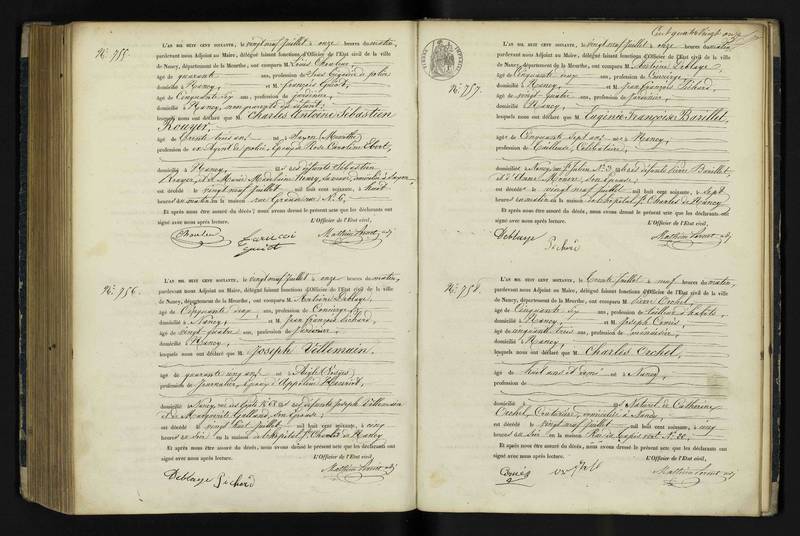 N.° 755.
L'AN MIL HUIT CENT SOIXANTE, le vingt neuf Juillet à onze heures du matin,
pardevant nous Adjoint au Maire, délégué faisant fonctions d'Officier de l'Etat civil de la ville
de Nancy, département de la Meurthe, ont comparu M. Louis
âgé de quarante ans, profession de Sous Brigadier de police
domicilié à Nancy, et M. François
âgé de Cinquante six ans, profession de jardinier,
domicilié à Nancy, non parents du défunt;
lesquels nous ont déclaré que M. Charles Antoine Sébastien
Rouyer,
âgé de trente trois ans né à (Meurthe)
profession de ex Agent de police, Epoux de Rose Caroline
domicilié à Nancy, fils des défunts Sébastien
Rouyer, et de Marie Madelaine Henry,
est décédé le vingt neuf Juillet mil huit cent soixante, à huit
heures du matin en la maison rue N.° 6,
Et après nous être assuré du décès, nous avons dressé le présent acte que les déclarants ont
signé avec nous après lecture. L'Officier de l'Etat civil,
N.° 756.
L'AN MIL HUIT CENT SOIXANTE, le vingt neuf Juillet à onze heures du matin,
pardevant nous Adjoint au Maire, délégué faisant fonctions d'Officier de l'Etat civil de la ville
de Nancy, département de la Meurthe, ont comparu M. Antoine Deblaye,
âgé de Cinquante deux ans, profession de Concierge,
domicilié à Nancy, et M. Jean François Pichard,
âgé de vingt quatre ans, profession de Jardinier,
domicilié à Nancy,
lesquels nous ont déclaré que M. Joseph Villemain,
âgé de quarante cinq ans né à (Vosges)
profession de Journalier, Epoux d'Appoline
domicilié à Nancy, fils des défunts Joseph Villemain
et de Marguerite son Epouse,
est décédé le vingt huit Juillet mil huit cent soixante, à cinq
heures du soir en la maison de l'hopital St. Charles de Nancy
Et après nous être assuré du décès, nous avons dressé le présent acte que les déclarants ont
signé avec nous après lecture. L'Officier de l'Etat civil,
Deblaye Pichard
Cent quatre vingt onze
N.° 757.
L'AN MIL HUIT CENT SOIXANTE, le vingt neuf Juillet à onze heures du matin,
pardevant nous Adjoint au Maire, délégué faisant fonctions d'Officier de l'Etat civil de la ville
de Nancy, département de la Meurthe, ont comparu M. Antoine Deblaye,
âgé de Cinquante deux ans, profession de Concierge,
domicilié à Nancy, et M. Jean François Pichard,
âgé de vingt quatre ans, profession de Jardinier,
domicilié à Nancy,
lesquels nous ont déclaré que M. Eugénie Françoise Barillot,
âgé de Cinquante sept ans née à Nancy,
profession de Tailleuse, Célibataire,
domicilié à Nancy, rue St. Julien N.° 3, fille des défunts Barillot
et d'Anne son Epouse,
est décédée le vingt neuf Juillet mil huit cent soixante, à sept
heures du matin en la maison de l'hopital St. Charles de Nancy
Et après nous être assuré du décès, nous avons dressé le présent acte que les déclarants ont
signé avec nous après lecture. L'Officier de l'Etat civil,
Deblaye
N.° 758.
L'AN MIL HUIT CENT SOIXANTE, le trente Juillet à neuf heures du matin,
pardevant nous Adjoint au Maire, délégué faisant fonctions d'Officier de l'Etat civil de la ville
de Nancy, département de la Meurthe, ont comparu M. Pierre Orchel,
âgé de Cinquante six ans, profession de tailleur d'habits,
domicilié à Nancy, et M. Joseph
âgé de cinquante trois ans, profession de menuisier,
domicilié à Nancy,
lesquels nous ont déclaré que M. Charles Orchel,
âgé de huit ans et demi né à Nancy,
profession de
domicilié à fils Naturel de Catherine
Orchel, Couturière, domiciliée à Nancy,
est décédé le vingt neuf Juillet mil huit cent soixante, à cinq
heures du soir en la maison Rue du N.° 20,
Et après nous être assuré du décès, nous avons dressé le présent acte que les déclarants ont
signé avec nous après lecture. L'Officier de l'Etat civil,